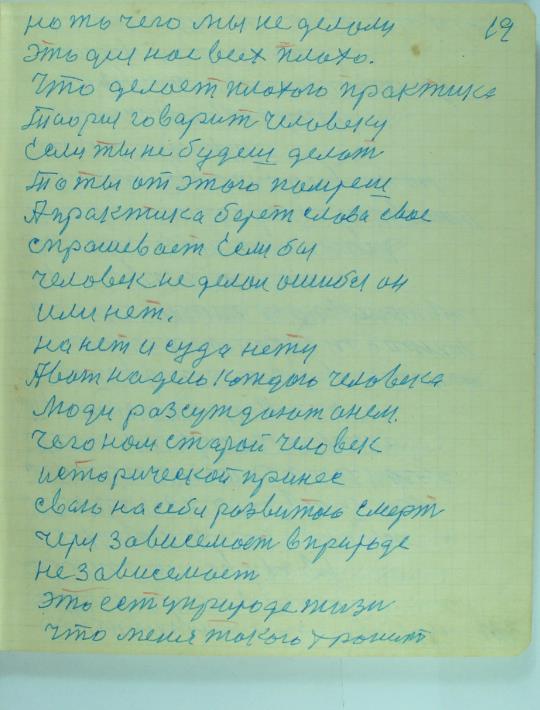 19
но то чего мы не делали
это для нас всех плохо.
Что делает плохого практика
Теория говарит человеку
Если ты не будеш делат
То ты от этого помреш
А практика берет слова свое
спрашевает Если бы
человек не делал ошибы он
или нет.
на нет и суда нету
А вот на дело каждого человека
Люди разсуждают о нем.
чего нам старой человек
исторической принес
сваю на себя развитаю смерт
через зависемаст в природе
не зависемаст
это ест у природе жизн
что меня такого хранит